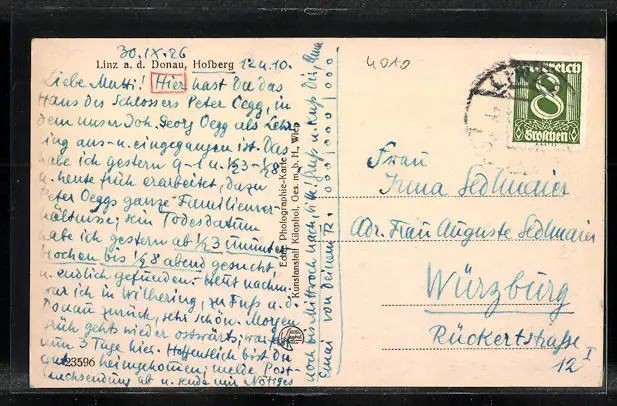 30.IX.26
Linz a. d. Donau, Hofberg 12 u. 10.
Liebe Mutti! Hier hast Du das
Haus des Schlossers Peter Oegg, in
dem unser Joh. Georg Oegg als Lehr-
ling aus- u. eingegangen ist. Das
habe ich gestern 9-1 u. ½3-½8
u. heute früh erarbeitet, dazu
Peter Oeggs ganze Familienver-
hältnisse; sein Todesdatum
habe ich gestern ab ½3 ununter-
brochen bis ½8 abend gesucht,
u. endlich gefunden. Heut nachm.
war ich in Wilhering, zu Fuß a. d.
Donau zurück, sehr schön. Morgen
früh gehts wieder ostwärts; war
nun 3 Tage hier. Hoffentlich bist Du
gut heimgekommen; melde Post-
nachsendung ab u. sende mir Nötiges
noch bis Mittwoch nach Gruß u. Kuß Dir, Mutti
von Deinem R.
23596
Echte Photographie-Karte
Kunstanstalt Kilophot, Ges. m. b. H., Wien
4010
8
Groschen
Frau
Irma Sedlmaier
Adr. Frau Auguste Sedlmaier
Würzburg
Rückertstraße
12 I